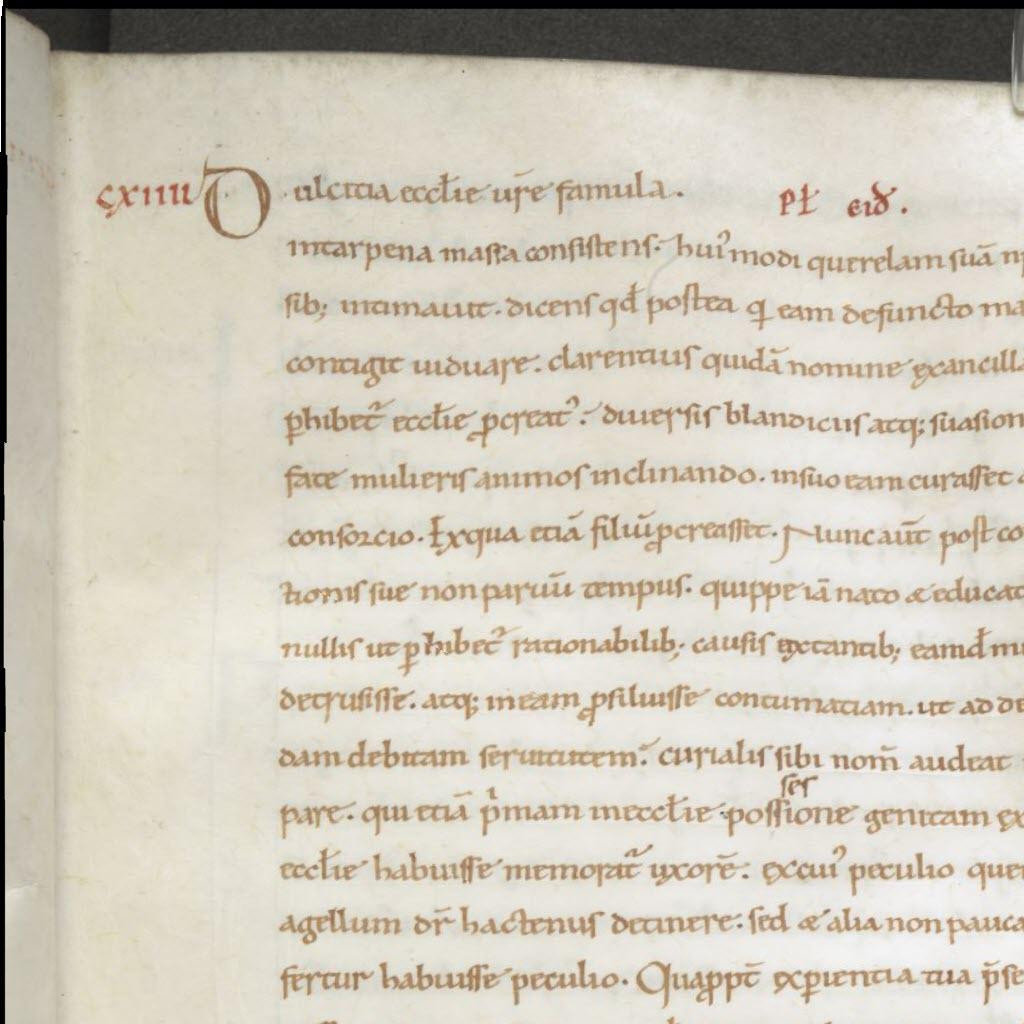 cxiiii Dulcitia eccłie ur̄e famula. pł eið.
intarpena massa consistens. hui' modi querelam suā
sib; intimauit. dicens qđ postea q̨ eam defuncto
contigit uiduare. clarentius quidā nomine
ꝑhibet᷑ eccłie ꝓcreat'. diuersis blandiciis atq;
fate mulieris animos inclinando. insuo eam curasset
consorcio. Exqua etiā filiū ꝓcreasset. Nunc aūt post
tionis sue non paruū tempus. quippe iā nato æ
nullis ut ꝑhibet᷑ rationabilib; causis extantib; eamđ
detrusisse. atq; in eam ꝓsiluisse contumatiam. ut ad
dam debitam seruitutem. curialis sibi nom̄ audeat
pare. qui etiā p'mam ineccłie possesione genitam
eccłie habuisse memorat᷑ uxorē. excui' peculio
agellum dr̄ hactenus detinere. sed æ alia non pauca
fertur habuisse peculio. Quaꝓpt̄ exꝑientia tua